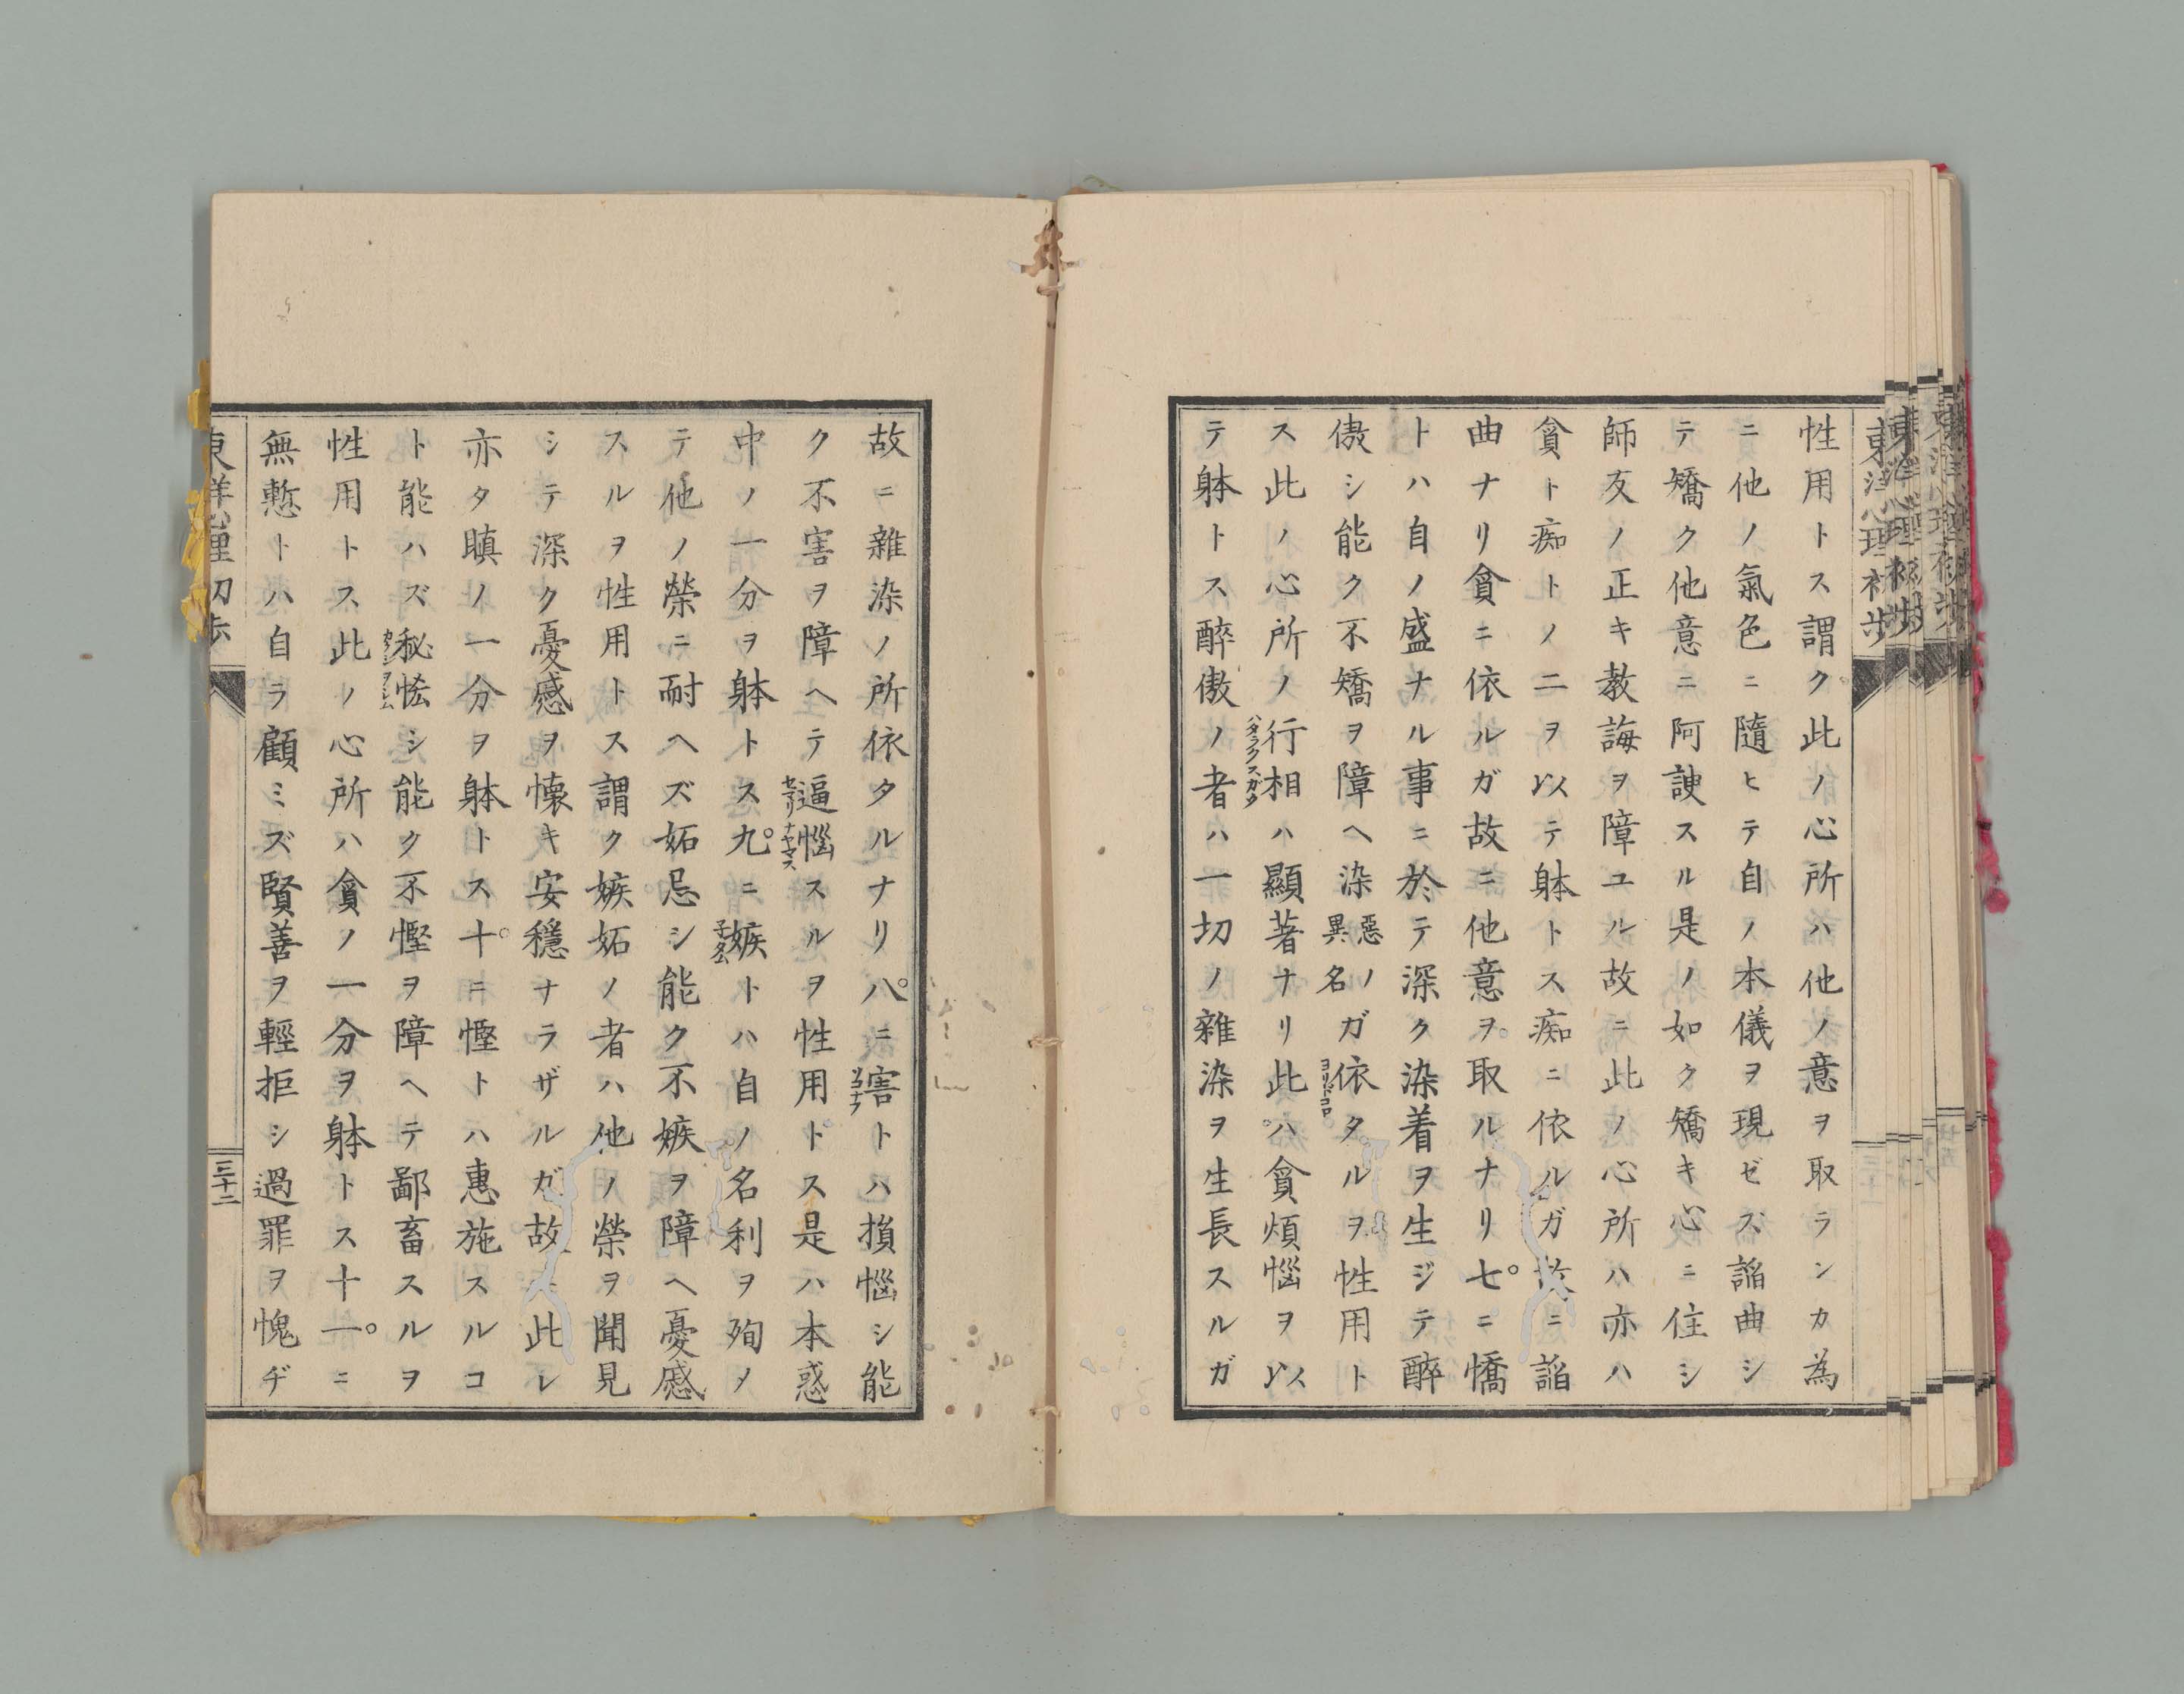 性用トス謂ク此ノ心所ハ他ノ意ヲ取ランカ為
ニ他ノ氣色ニ隨ヒテ自ノ本儀ヲ現ゼズ諂曲シ
テ矯ク他意ニ阿諛スル是ノ如ク矯キ心ニ住シ
師友ノ正キ教誨ヲ障ユル故ニ此ノ心所ハ亦ハ
貪ト痴トノ二ヲ以テ躰トス痴ニ依ルガ故ニ諂
曲ナリ貪ニ依ルガ故ニ他意ヲ取ルナリ七ニ憍
トハ自ノ盛ナル事ニ於テ深ク染着ヲ生ジテ醉
傲シ能ク不矯ヲ障ヘ染惡ノ異名ガ依ヨリドコロタルヲ性用ト
ス此ノ心所ノ行相ハタラクスガタハ顯著ナリ此ハ貪煩惱ヲ以
テ躰トス醉傲ノ者ハ一切ノ雜染ヲ生長スルガ
故ニ雜染ノ所依タルナリ八ニ害ソコナフトハ損惱シ能
ク不害ヲ障ヘテ逼惱セマリナヤマススルヲ性用トス是ハ本惑
中ノ一分ヲ躰トス九ニ嫉子タムトハ自ノ名利ヲ殉メ
テ他ノ榮ニ耐ヘズ妬忌シ能ク不嫉ヲ障ヘ憂慼
スルヲ性用トス謂ク嫉妬ノ者ハ他ノ榮ヲ聞見
シテ深ク憂慼ヲ懐キ安穩ナラザルガ故ニ此レ
亦タ瞋ノ一分ヲ躰トス十ニ慳トハ惠施スルコ
ト能ハズ秘悋シ能ク不慳ヲ障ヘテ鄙畜スルヲ
性用トス此ノ心所ハ貪ノ一分ヲ躰トス十一ニ
無慙トハ自ラ顧ミズ賢善ヲ輕拒シ過罪ヲ愧ヂ
東洋心理初歩
三十二